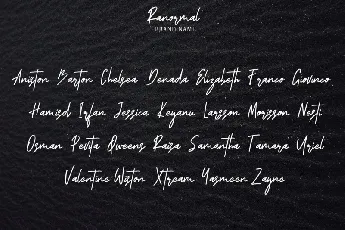 Ranormal
BRAND NAME
Aniston Barton Chelsea Denada Elizabeth Franco Giovinco
Hamisod Irfan Jessica Keyanu Larsson Morisson Nesti
Osman Pevita Queens Raisa Samantha Tamara Uriel
Valentine Wiston Xtream Yasmeen Zayne